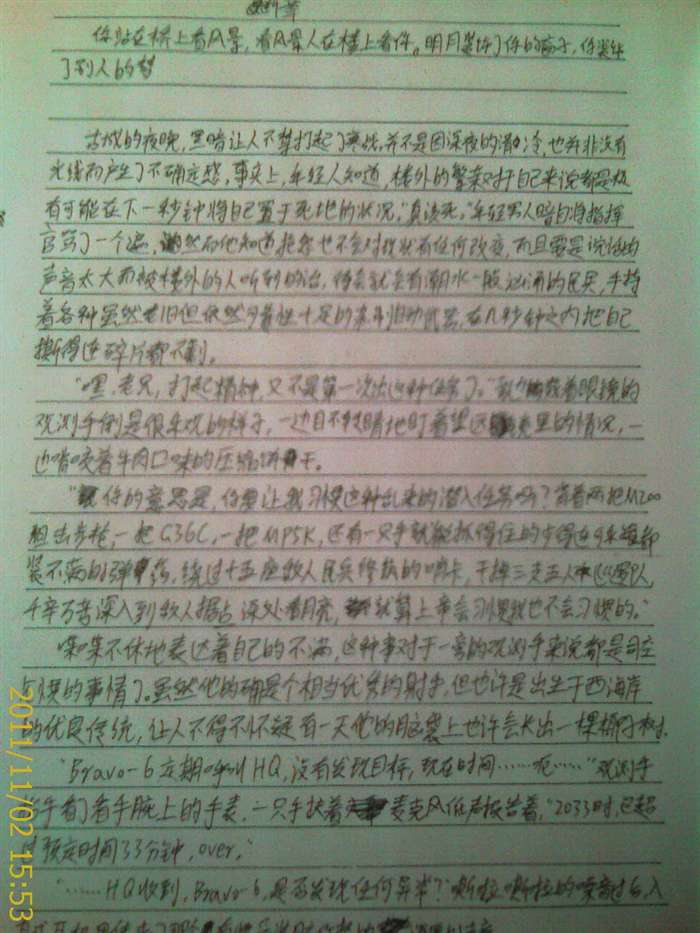 你站在桥上看风景，看风景人在楼上看你。明月装饰了你的窗子，你装饰
了别人的梦
古城的夜晚，黑暗让人不禁打起了寒战，并不是因深夜的湿冷，也并非没有
光线而产生了不确定感，事实上，年轻人知道，楼外的繁荣对于自己来说都是极
有可能在下一秒钟将自己置于死地的状况，"真该死。"年轻男人暗自将指挥
官骂了一个遍，然而他知道抱怨也不会对现状有任何改变，而且要是说话的
声音太大而被楼外的人听到的话，待会就会有潮水一般汹涌的民兵，手持
着各种虽然老旧但依然可靠性十足的自动武器，在几秒钟之内把自己
撕得连碎片都不剩。
"嘿，老兄，打起精神，又不是第一次出这种任务了。"戴着眼镜的
观测手倒是很乐观的样子，一边目不转睛地盯着望远镜里的情况，一
边啃咬着牛肉口味的压缩饼干。
"你的意思是，你要让我习惯这种乱来的潜入任务吗？背着两把M200
狙击步枪，一把G36C，一把MP5K，还有一只手就能抓得住的少得连
装不满的弹药，绕过十五座敌人民兵修筑的哨卡，干掉三支五人巡逻队，
千辛万苦深入到敌人据点深处看月亮，就算上帝会习惯我也不会习惯的。"
喋喋不休地表达着自己的不满，这种事对于一旁的观测手来说都是司空
见惯的事情了。虽然他的确是个相当优秀的射手，但也许是出生于西海岸
的优良传统，让人不得不怀疑有一天他的脑袋上也许会长出一棵椰子树。
"Bravo-6定期呼叫HQ，没有发现目标，现在时间……呃……"观测手
看了看手腕上的手表，一只手扶着麦克风低声报告着，"2033时，已超
过预定时间33分钟，over。"
"……HQ收到，Bravo-6，是否发现任何异常？"嘶拉嘶拉的噪音过后，入
2011/11/02 15:53